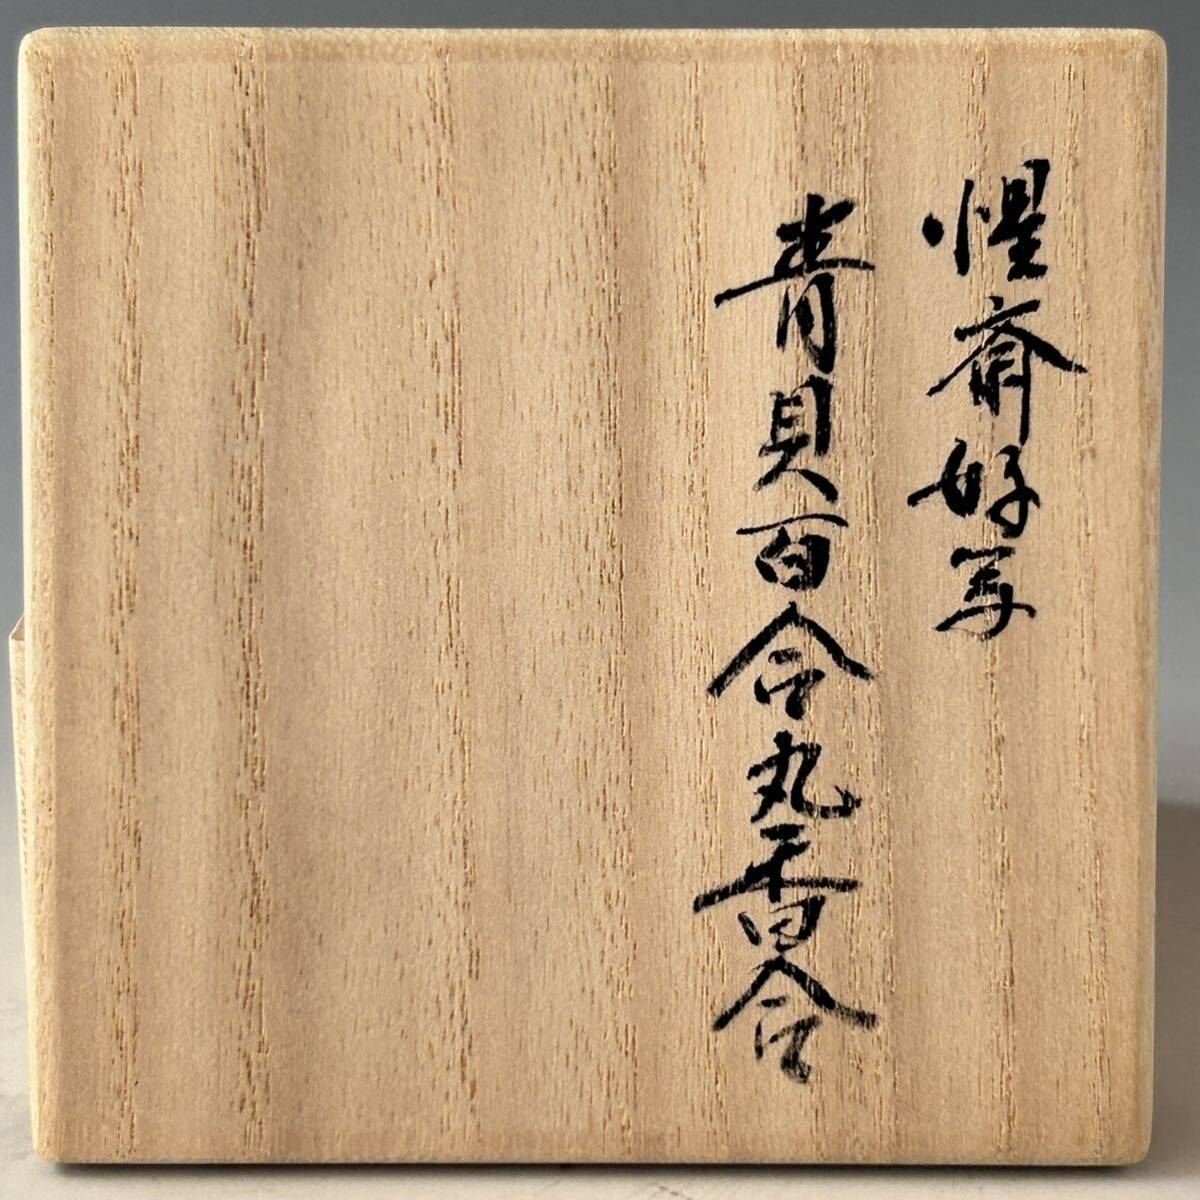 惺斎好写
青貝百合丸香合